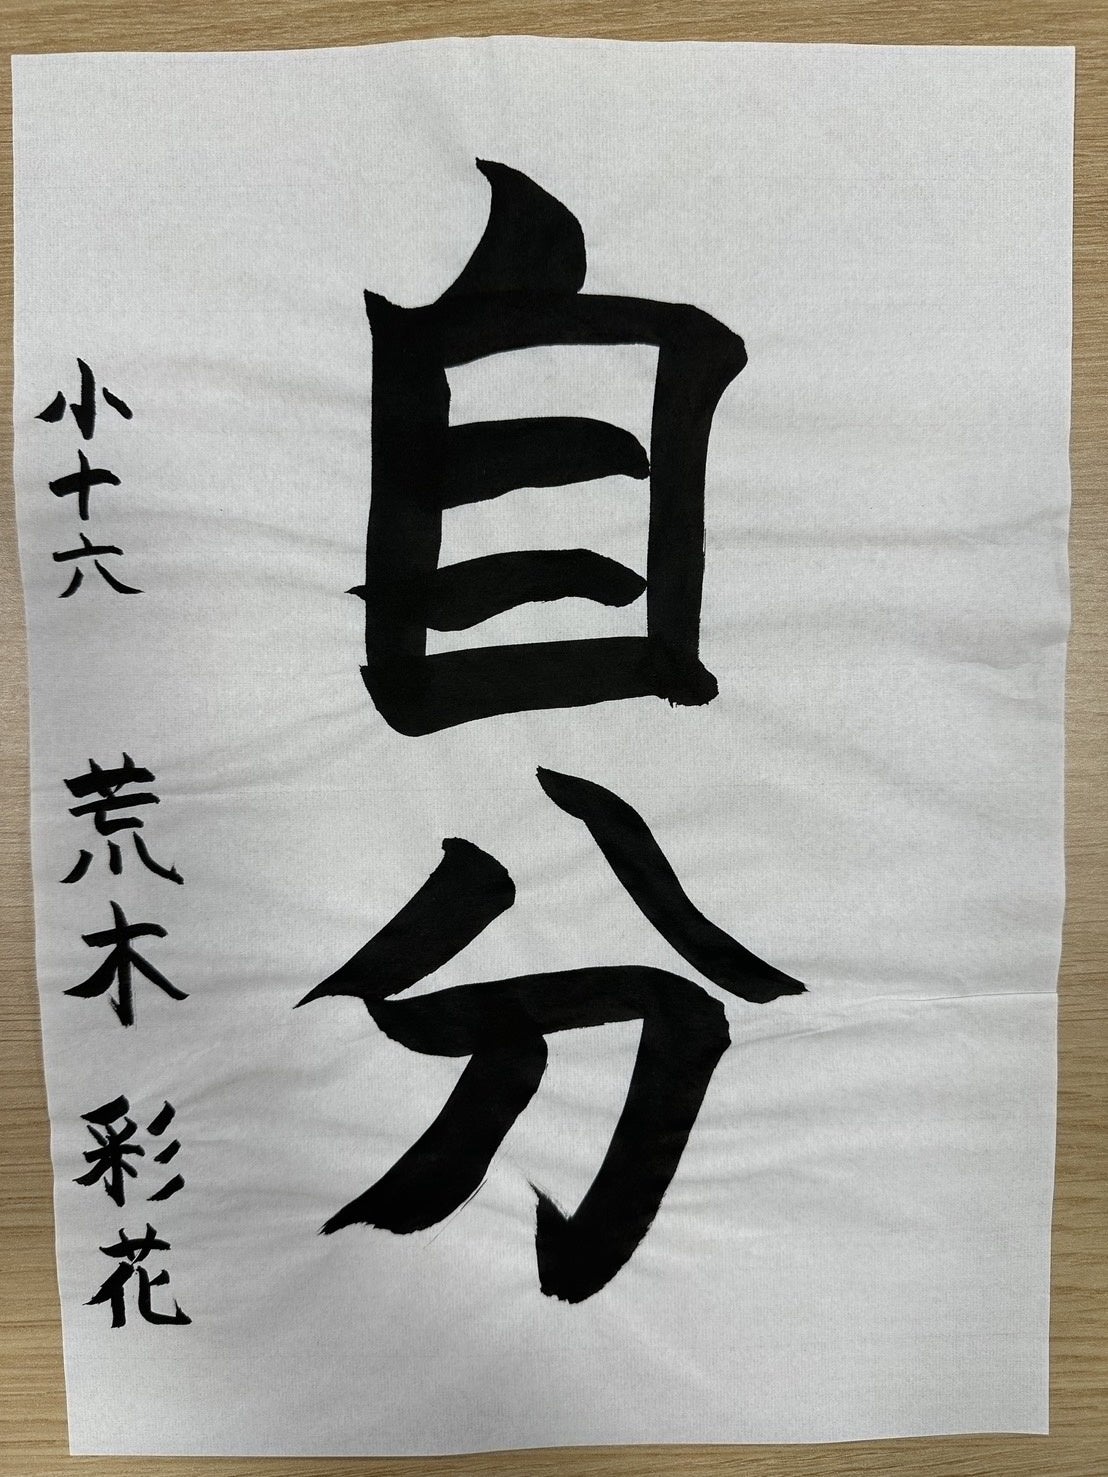 自分
小十六 荒木 彩花